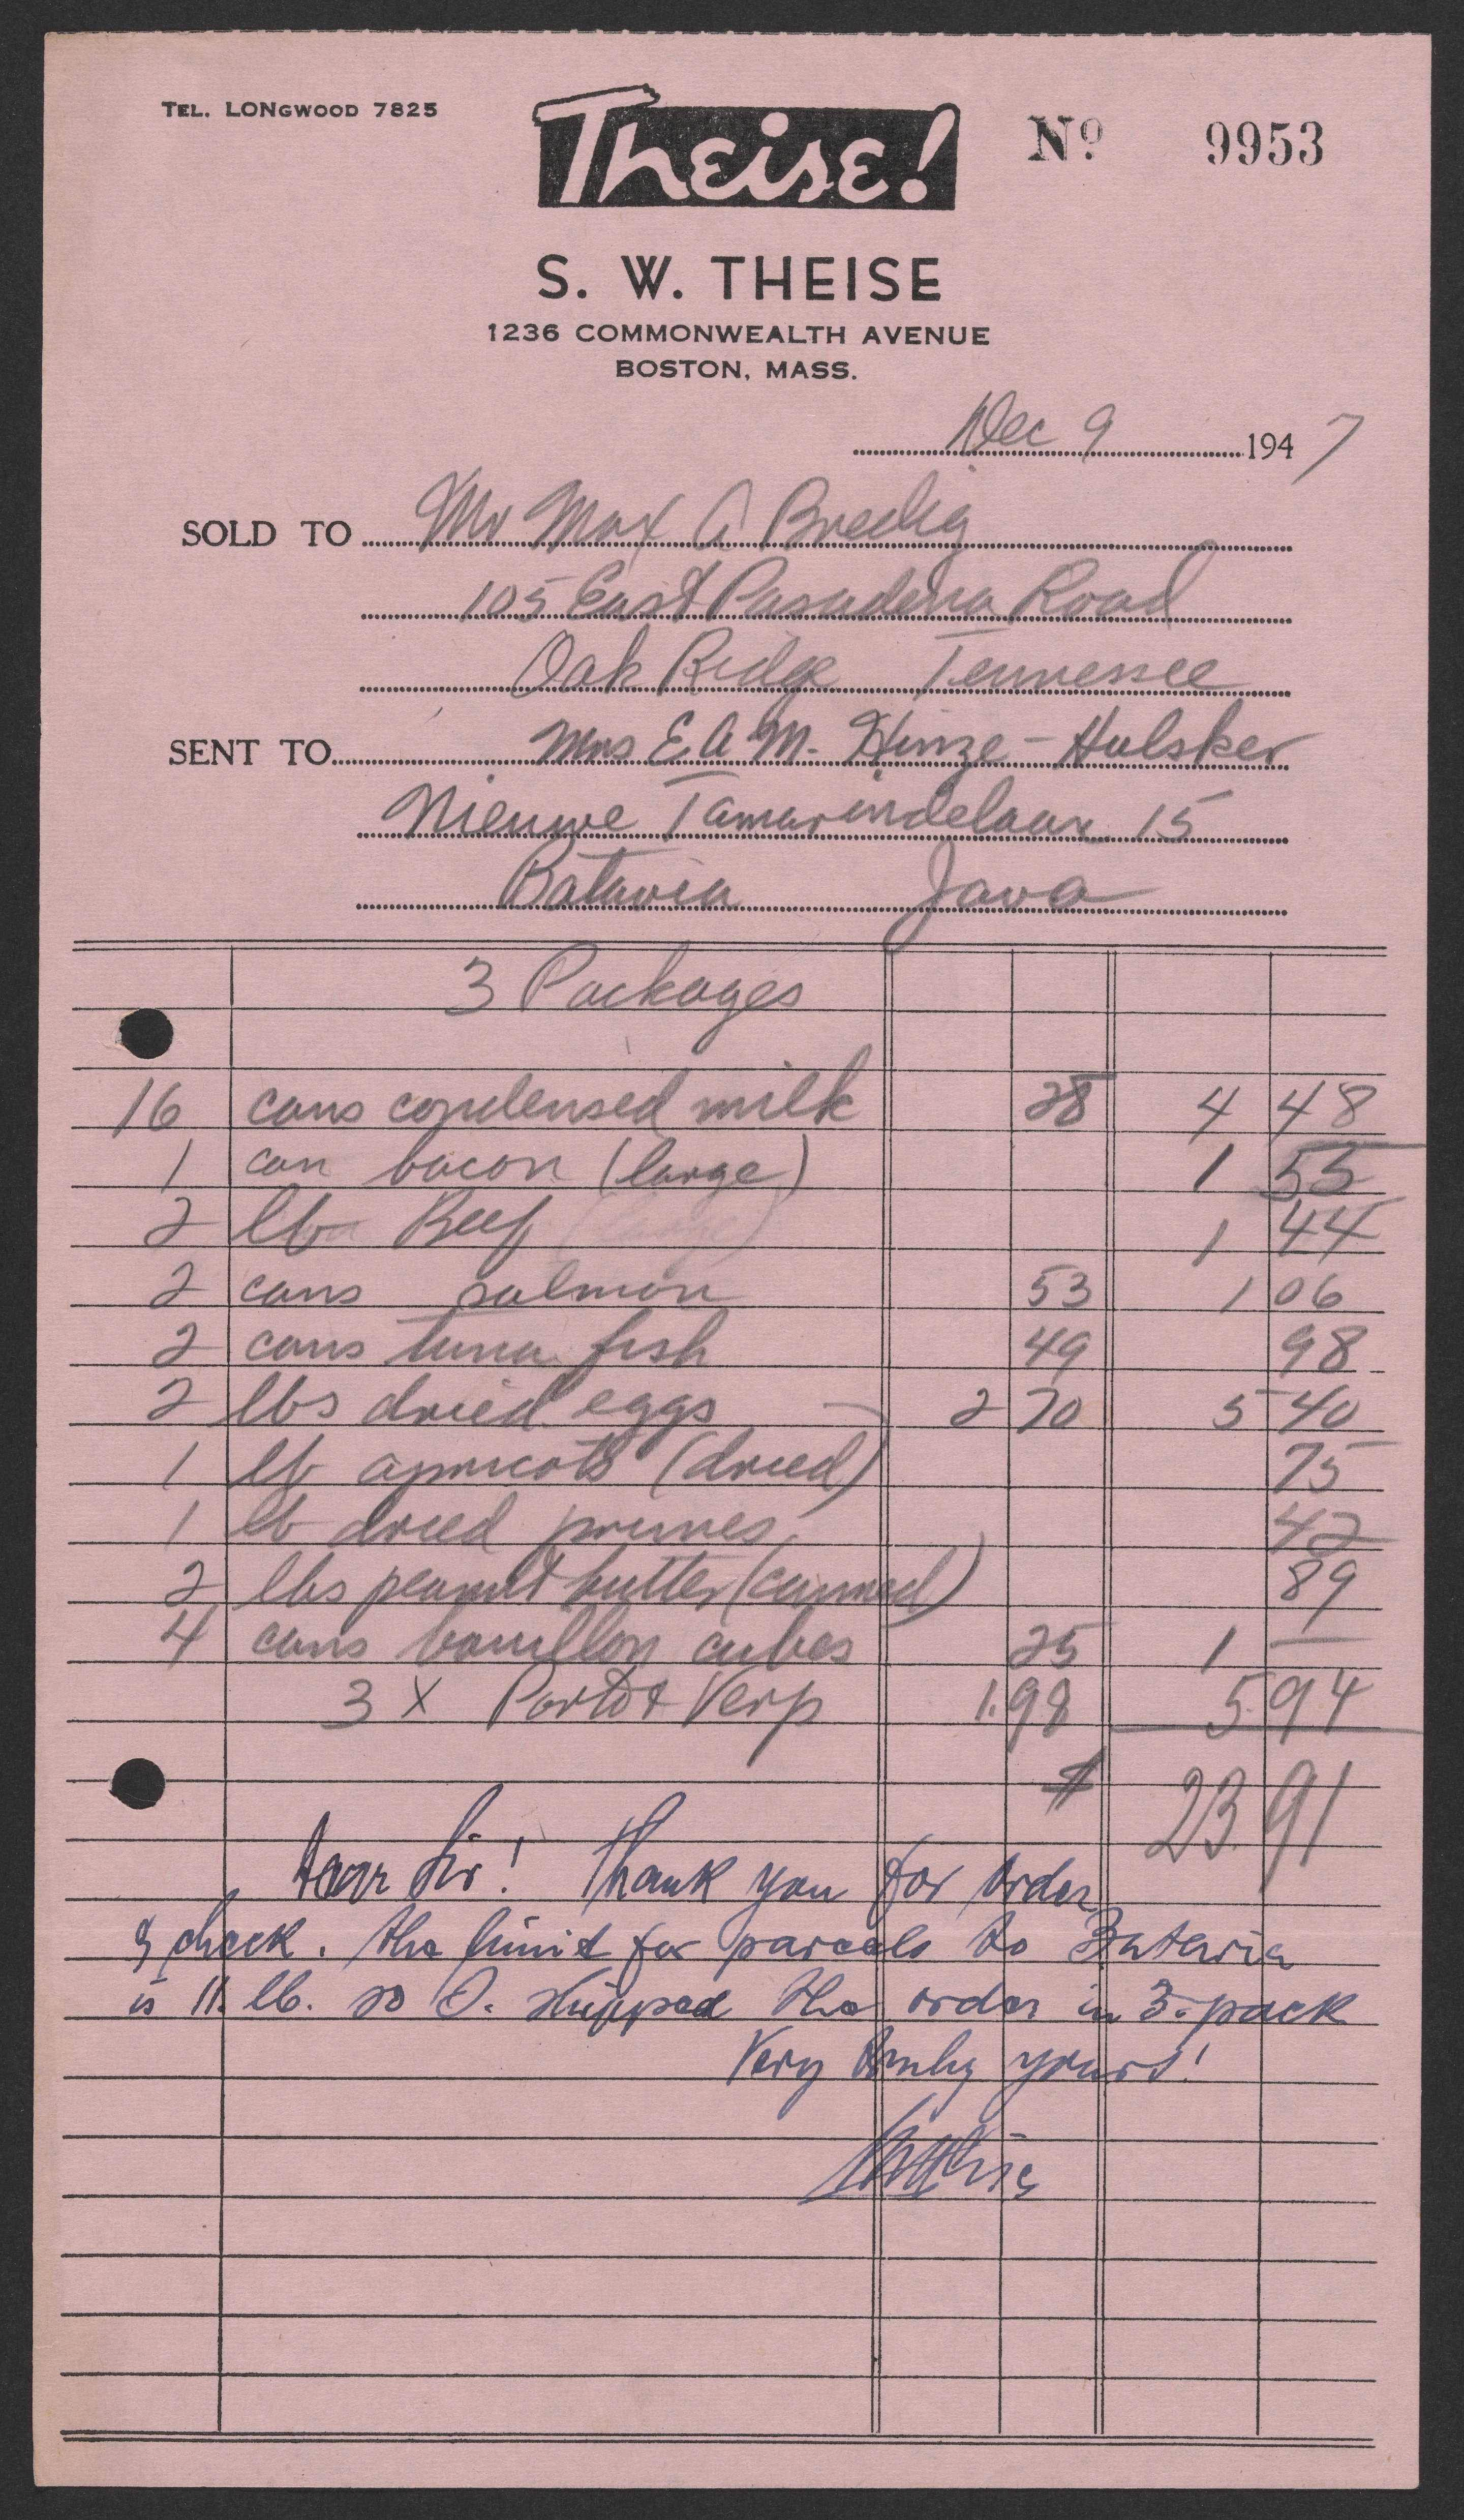 TEL. LONGWOOD 7825
Theise!
Nº 9953
S. W. THEISE
1236 COMMONWEALTH AVENUE
BOSTON, MASS.
Dec 9 1947
SOLD TO Mr Max A Bredig
105 East Pasadena Road
Oak Ridge Tennessee
SENT TO Mrs E A M. Hinze-Hulsker
Nieuwe Tamarindelaan 15
Batavia Java
3 Packages
16 cans condensed milk 28 4 48
1 can bacon (large) 1 55
2 lb Beef 1 44
2 cans salmon 53 1 06
2 cans tuna fish 49 98
2 lbs dried eggs 2 70 5 40
1 lb apricots (dried) 75
1 lb dried prunes 42
2 lbs peanut butter (canned) 89
4 cans bouillon cubes 25 1 —
3 X Porto & Verp 1.98 5.94
$ 23.91
Dear Sir! Thank you for order
& check. the limit for parcels to Batavia
is 11 lb. so I. shipped the order in 3. pack
Very truly yours!
SWTheise